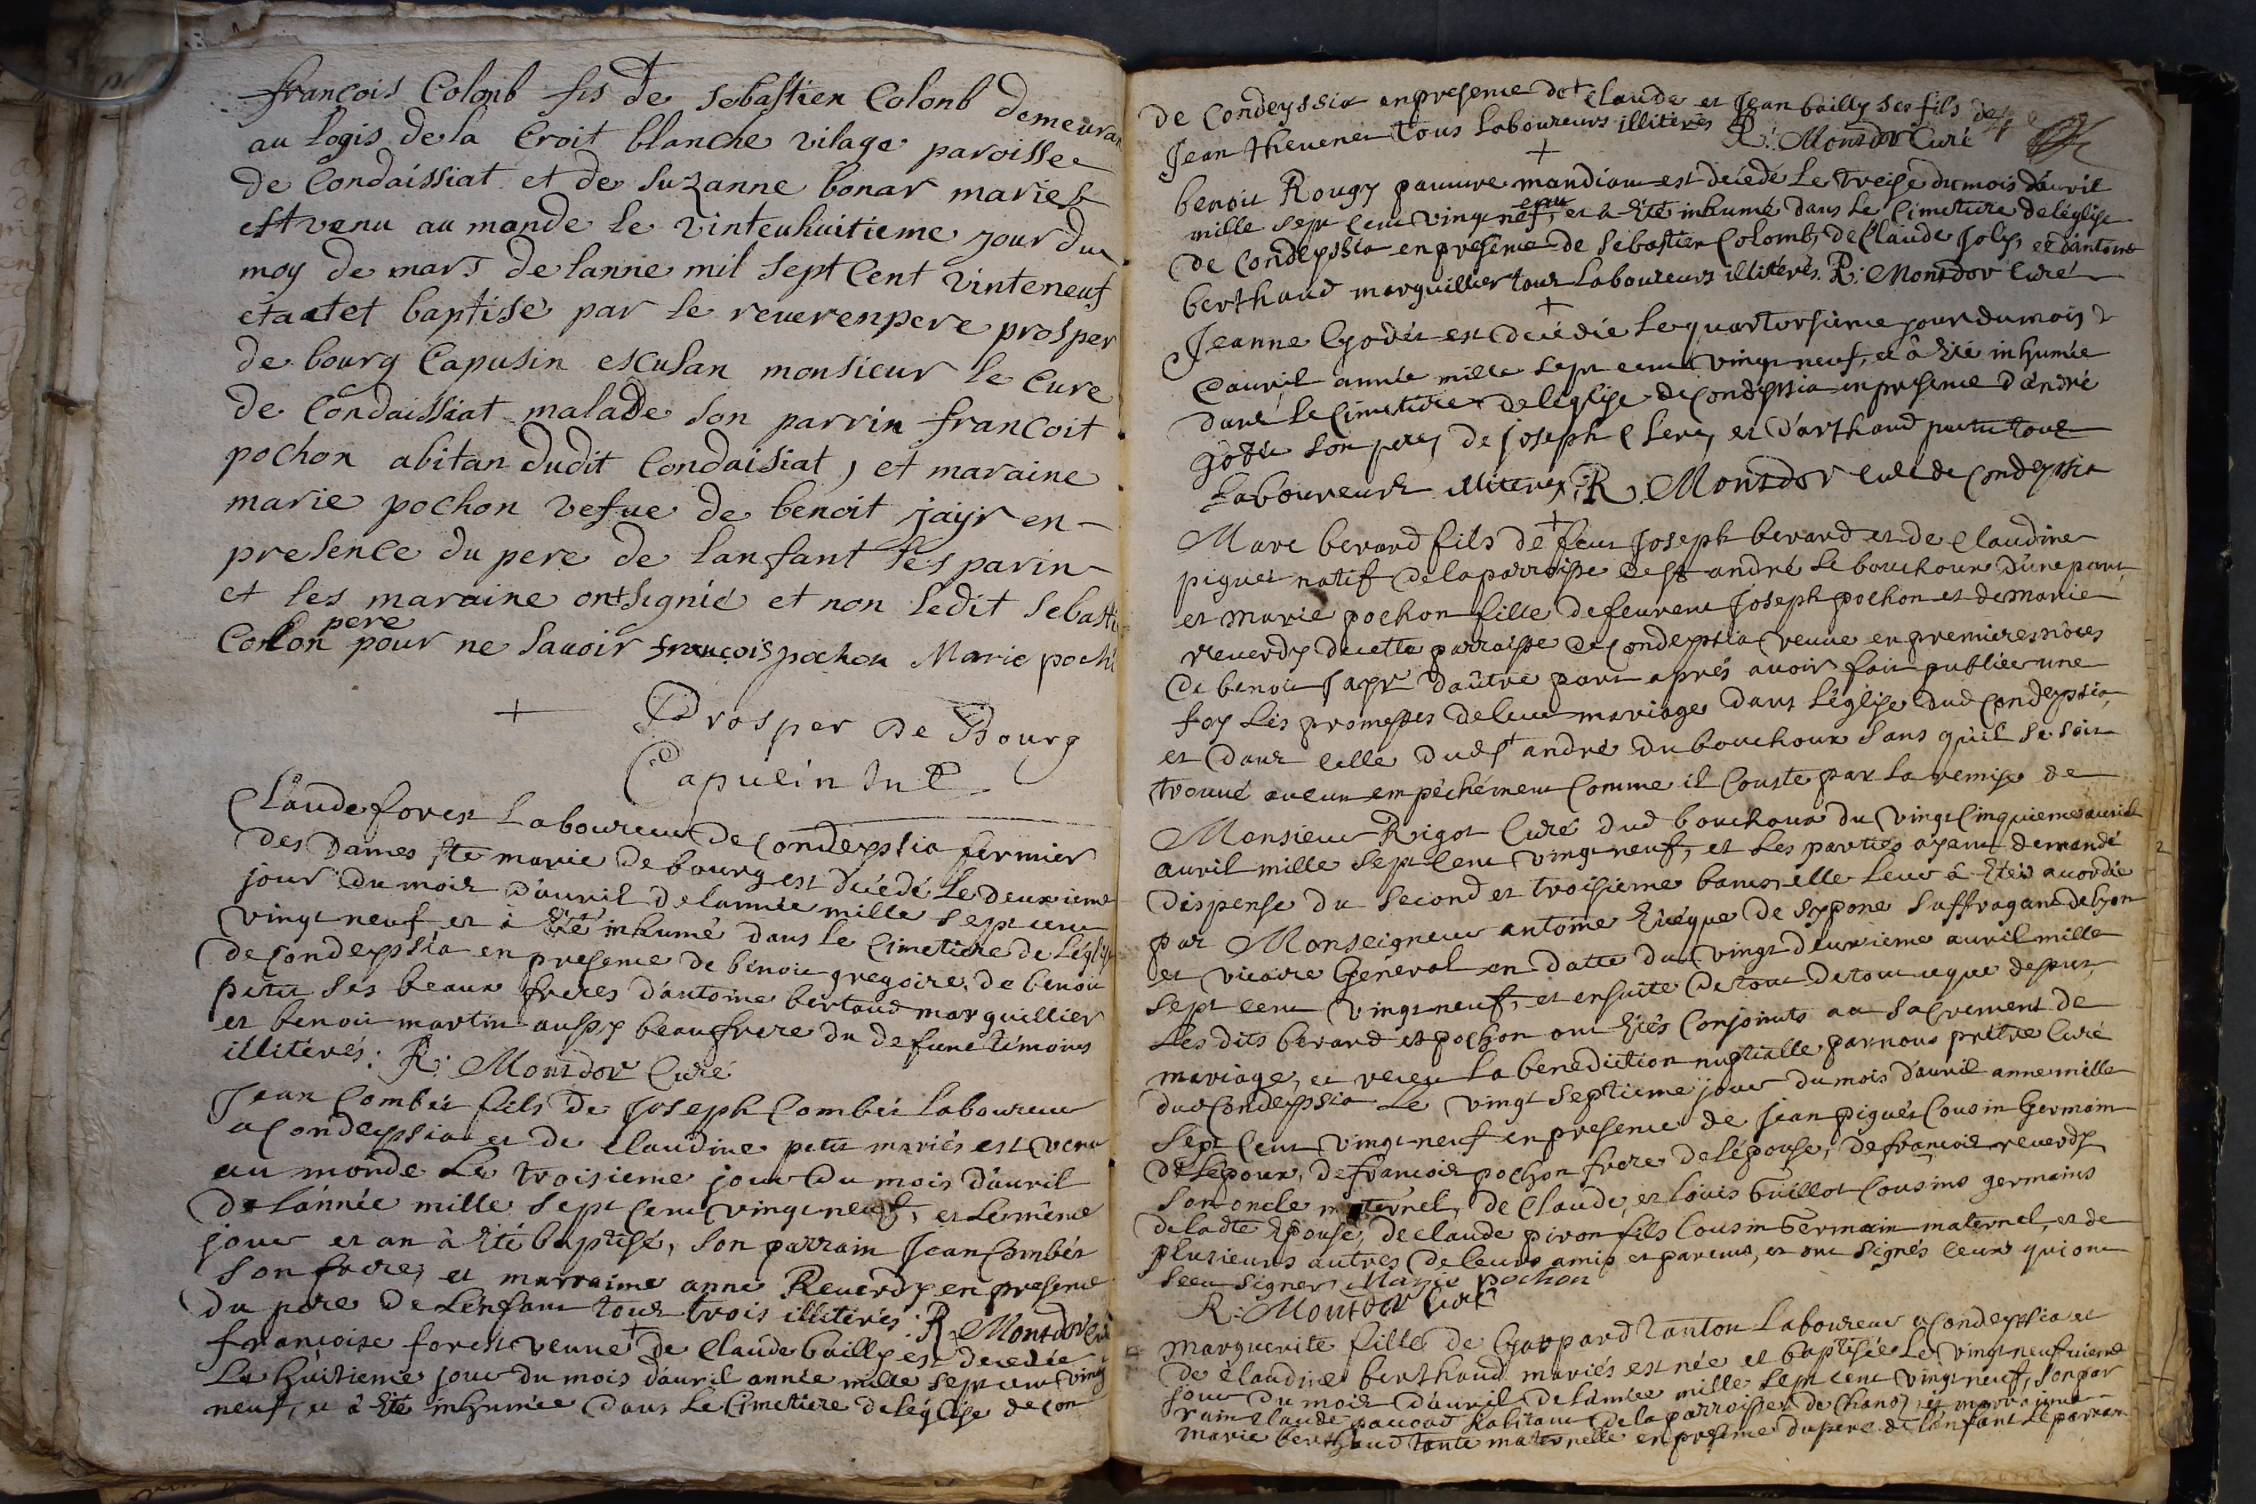 françois Colonb fis de sebastien Colonb demeuran
au logis de la Croit blanche vilage paroisse
de Condaissiat et de suzanne bonar maries
est venu au monde le vinteuhuitieme jour du
moy de mars de lanne mil sept Cent vinteneuf
etaetet baptise par le reuerenpere prosper
de bourg Capusin esCusan monsieur le Cure
de Condaissiat malade son parrin françoit
pochon abitan dudit Condaisiat, et maraine
marie pochon vefue de benoit jayr en-
presence du pere de lanfant les parin-
et les maraine ont signié et non ledit sebasti
Colon pere pour ne sauoir françois pochon Marie poch
+ Prosper de Bourg
Capucin Ind
Claude forest Laboureur de Condeyssia fermier
des Dames ste marie de bourg est décédé Le deuxieme
jour du mois d'auril de lannée mille sept cent
vingt neuf et à été inhumé dans le Cimetiere de L'église
de Condeyssia en presence de bênoit gregoire, de benoit
petit ses beaux freres d'antoine bertaud marguillier
et benoit martin aussy beaufrere du defunt témoins
illitérés: R: Montdor Curé
Jean Combét fils de Joseph Combét Laboureur
a Condeyssia et de Claudine petit mariés est venu
au monde Le troisieme jour du mois d'auril
de L'année mille sept Cent vingt neuf, et Le même
jour et an à été baptisé, son parrain Jean Combét
son frere, et marraine anne Reuerdy en presence
du pere de L'enfant tous trois illitérés: R. Montdor Curé
+
françoise forest veuue de Claude bailly est decedée
Le huitieme jour du mois d'auril année mille sept cent vingt
neuf, et à été inhumée dans Le Cimetiere de l'église de Con
de Condeyssia en presence de Claude et Jean bailly ses fils de
Jean theuenet tous Laboureurs illitérés R: Montdor Curé
+
benoit Rougy pauure mandiant est décédé Le treise du mois d'auril
mille sept Cent vingt neuf, et à été inhumé dans Le Cimetiere de l'église
de Condeyssia en presence de sebastien Colomb, de Claude Joly, et d'antoine
berthaud marguillier tous Laboureurs illitérés. R: Montdor Curé
+
Jeanne Godét est décédée Le quartorsieme jour du mois
d'auril année mille sept cent vingt neuf, et à été inhumée
dans Le Cimetiere de l'église de Condeyssia en presence d'andré
godét son pere, de Joseph Clerc, et d'arthaud petit tous
Laboureurs illiterés, R. Montdor Curé de Condeyssia
+
Marc berard fils de feu Joseph berard et de Claudine
piguet natif de la parroisse de st andré le bouchoux d'une part,
et marie pochon fille de feu Joseph pochon et de marie
reuerdy de cette parroisse de Condeyssia veuue en premieres nôces
de benoit Jayr d'aûtre part aprés auoir fait publiér une
foy Les promesses de leur mariage dans L'église dud Condeyssia,
et dans celle dud st andré du bouchoux sans qu'il se soit
trouué aucun empéchément Comme il Conste par La remise de
Monsieur Rigot Curé dud bouchoux du vingt Cinquieme auril
auril mille sept Cent vingt neuf, et Les parties ayant demandé
dispense du second et troisieme bans elle leur à été acordée
par Monseigneur antoine Evéque de sypone suffragant de Lyon
et vicaire General en datte du vingt deuxieme auril mille
sept cent vingt neuf, et ensuite de tout ce que dessus
Les dits berard et pochon ont étés Conjoints au sacrement de
mariage, et receu La benediction nuptialle par nous prêtre Curé
dud Condeyssia Le vingt septieme jour du mois d'auril anne mille
sept Cent vingt neuf en presence de Jean piguét Cousin Germain
de L'epoux, de françois pochon frere de L'épouse, de françois reuerdy
son oncle maternel, de Claude, et Loüis Guillot Cousins germains
de ladte Epouse, de claude piron fils Cousin Germain maternel, et de
plusieurs autres de leurs amis et parens, et ont signés ceux qui ont
sceu signer Marie pochon
R: Montdor Curé
marguerite fille de Gaspard Tanton Laboureur a Condeyssia et
de claudine berthaud mariés est née et baptisée Le vingt neufuieme
jour du mois d'auril de l'année mille sept cent vingt neuf, son par
rain claude paccoud habitant de la parroisse de Chanoz, et marraine
marie berthaud tante maternelle en presence du pere de l'enfant Le parrain